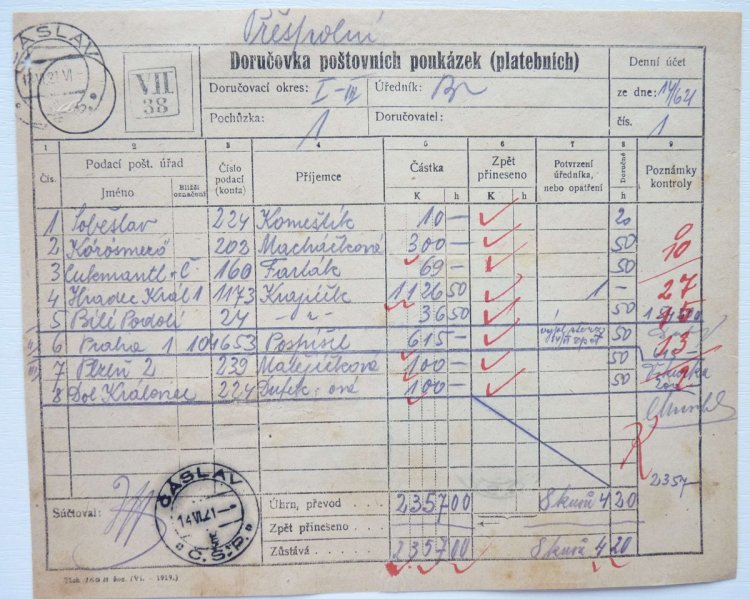 Přespolní
ČÁSLAV
VII
38
Doručovka poštovních poukázek (platebních)
Denní účet
Doručovací okres: I-III Úředník:
ze dne: 14/6 21
Pochůzka: 1 Doručovatel:
čís. 1
1 2 3 4 5 6 7 8 9
Čís. Podací pošt. úřad Číslo podací (konta) Příjemce Částka Zpět přineseno Potvrzení úředníka, nebo opatření Doručné Poznámky kontroly
Jméno Bližší označení K h K h h
1 Soběslav 224 Komeštík 10 — 20
2 Körösmező 203 Macháčková 300 — 50 10
3 Cukmantl • Č 160 Farták 69 — 50
4 Hradec Král 1 1173 Krajíček 1126 50 1 — 27
5 Bílé Podolí 24 — „ — 36 50 50
6 Praha 1 104653 Pospíšil 615 — 50 13
7 Plzeň 2 239 Matějíčková 100 — 50
8 Dol Královec 224 Dufek 100 — 50
2357—
ČÁSLAV
14.VI.21
Č.S.P.
Součtoval:
Úhrn, převod 2357 00 8 kusů 4 20
Zpět přineseno
Zůstává 2357 00 8 kusů 4 20